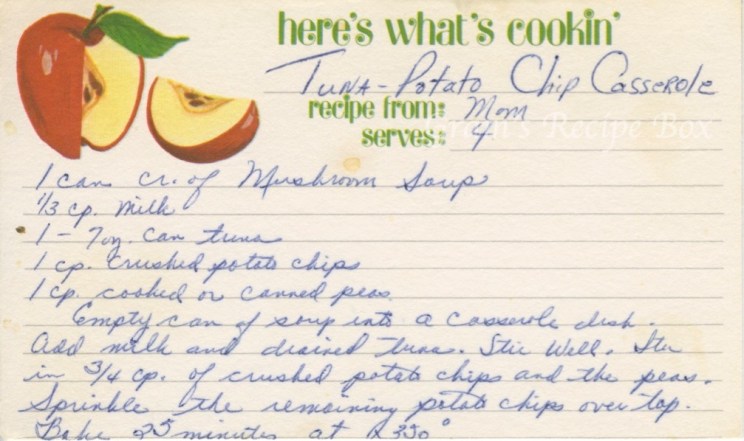 here's what's cookin'
Tuna-Potato Chip Casserole
recipe from: Mom
serves: 4
Recipe Box
1 can cr. of Mushroom Soup
1/3 cp. milk
1 - 7 oz. can tuna
1 cp. crushed potato chips
1 cp. cooked or canned peas.
Empty can of soup into a casserole dish.
Add milk and drained tuna. Stir Well. Stir
in 3/4 cp. of crushed potato chips and the peas.
Sprinkle the remaining potato chips over top.
Bake 25 minutes at 350°